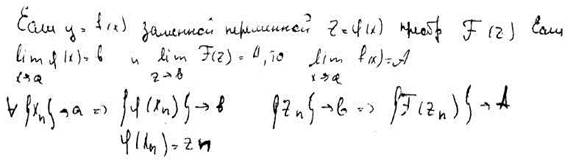 Если y = f(x) заменной переменной z = φ(x) преобр F(z) Если
lim φ(x) = b и lim F(z) = A, то lim f(x) = A
x→a z→b x→a
∀ {x_n} → a => {φ(x_n)} → b {z_n} → b => {F(z_n)} → A
φ(x_n) = z_n